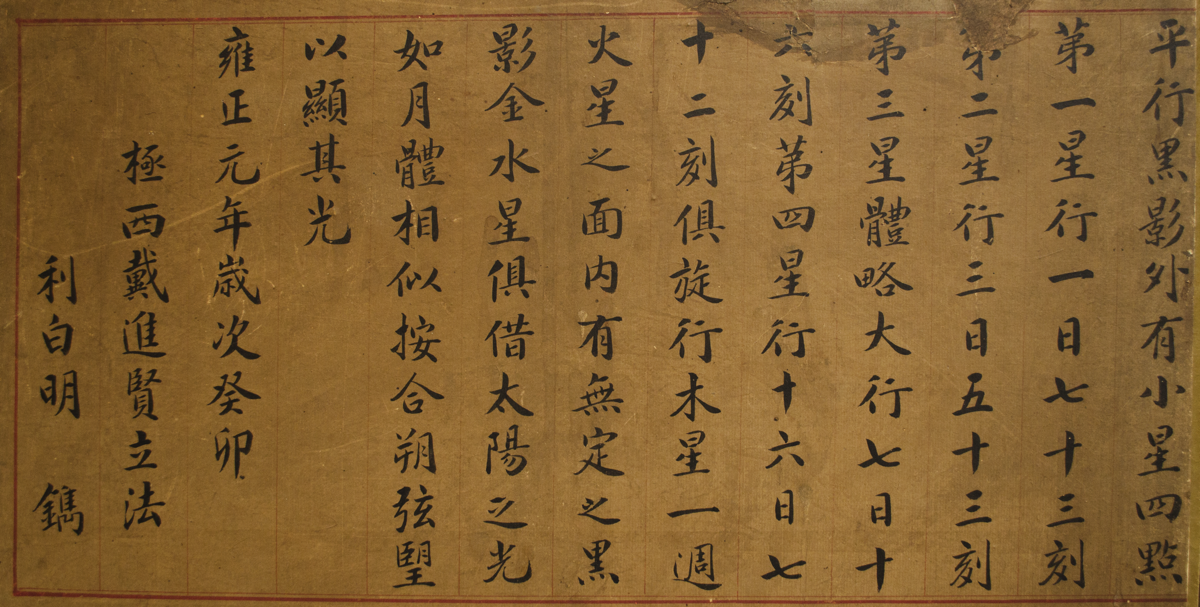 平行黑影外有小星四點
第一星行一日七十三刻
第二星行三日五十三刻
第三星體略大行七日十
六刻第四星行十六日七
十二刻俱旋行木星一週
火星之面內有無定之黑
影金水星俱借太陽之光
如月體相似按合朔弦朢
以顯其光
雍正元年歲次癸卯
極西戴進賢立法
利白明 鐫